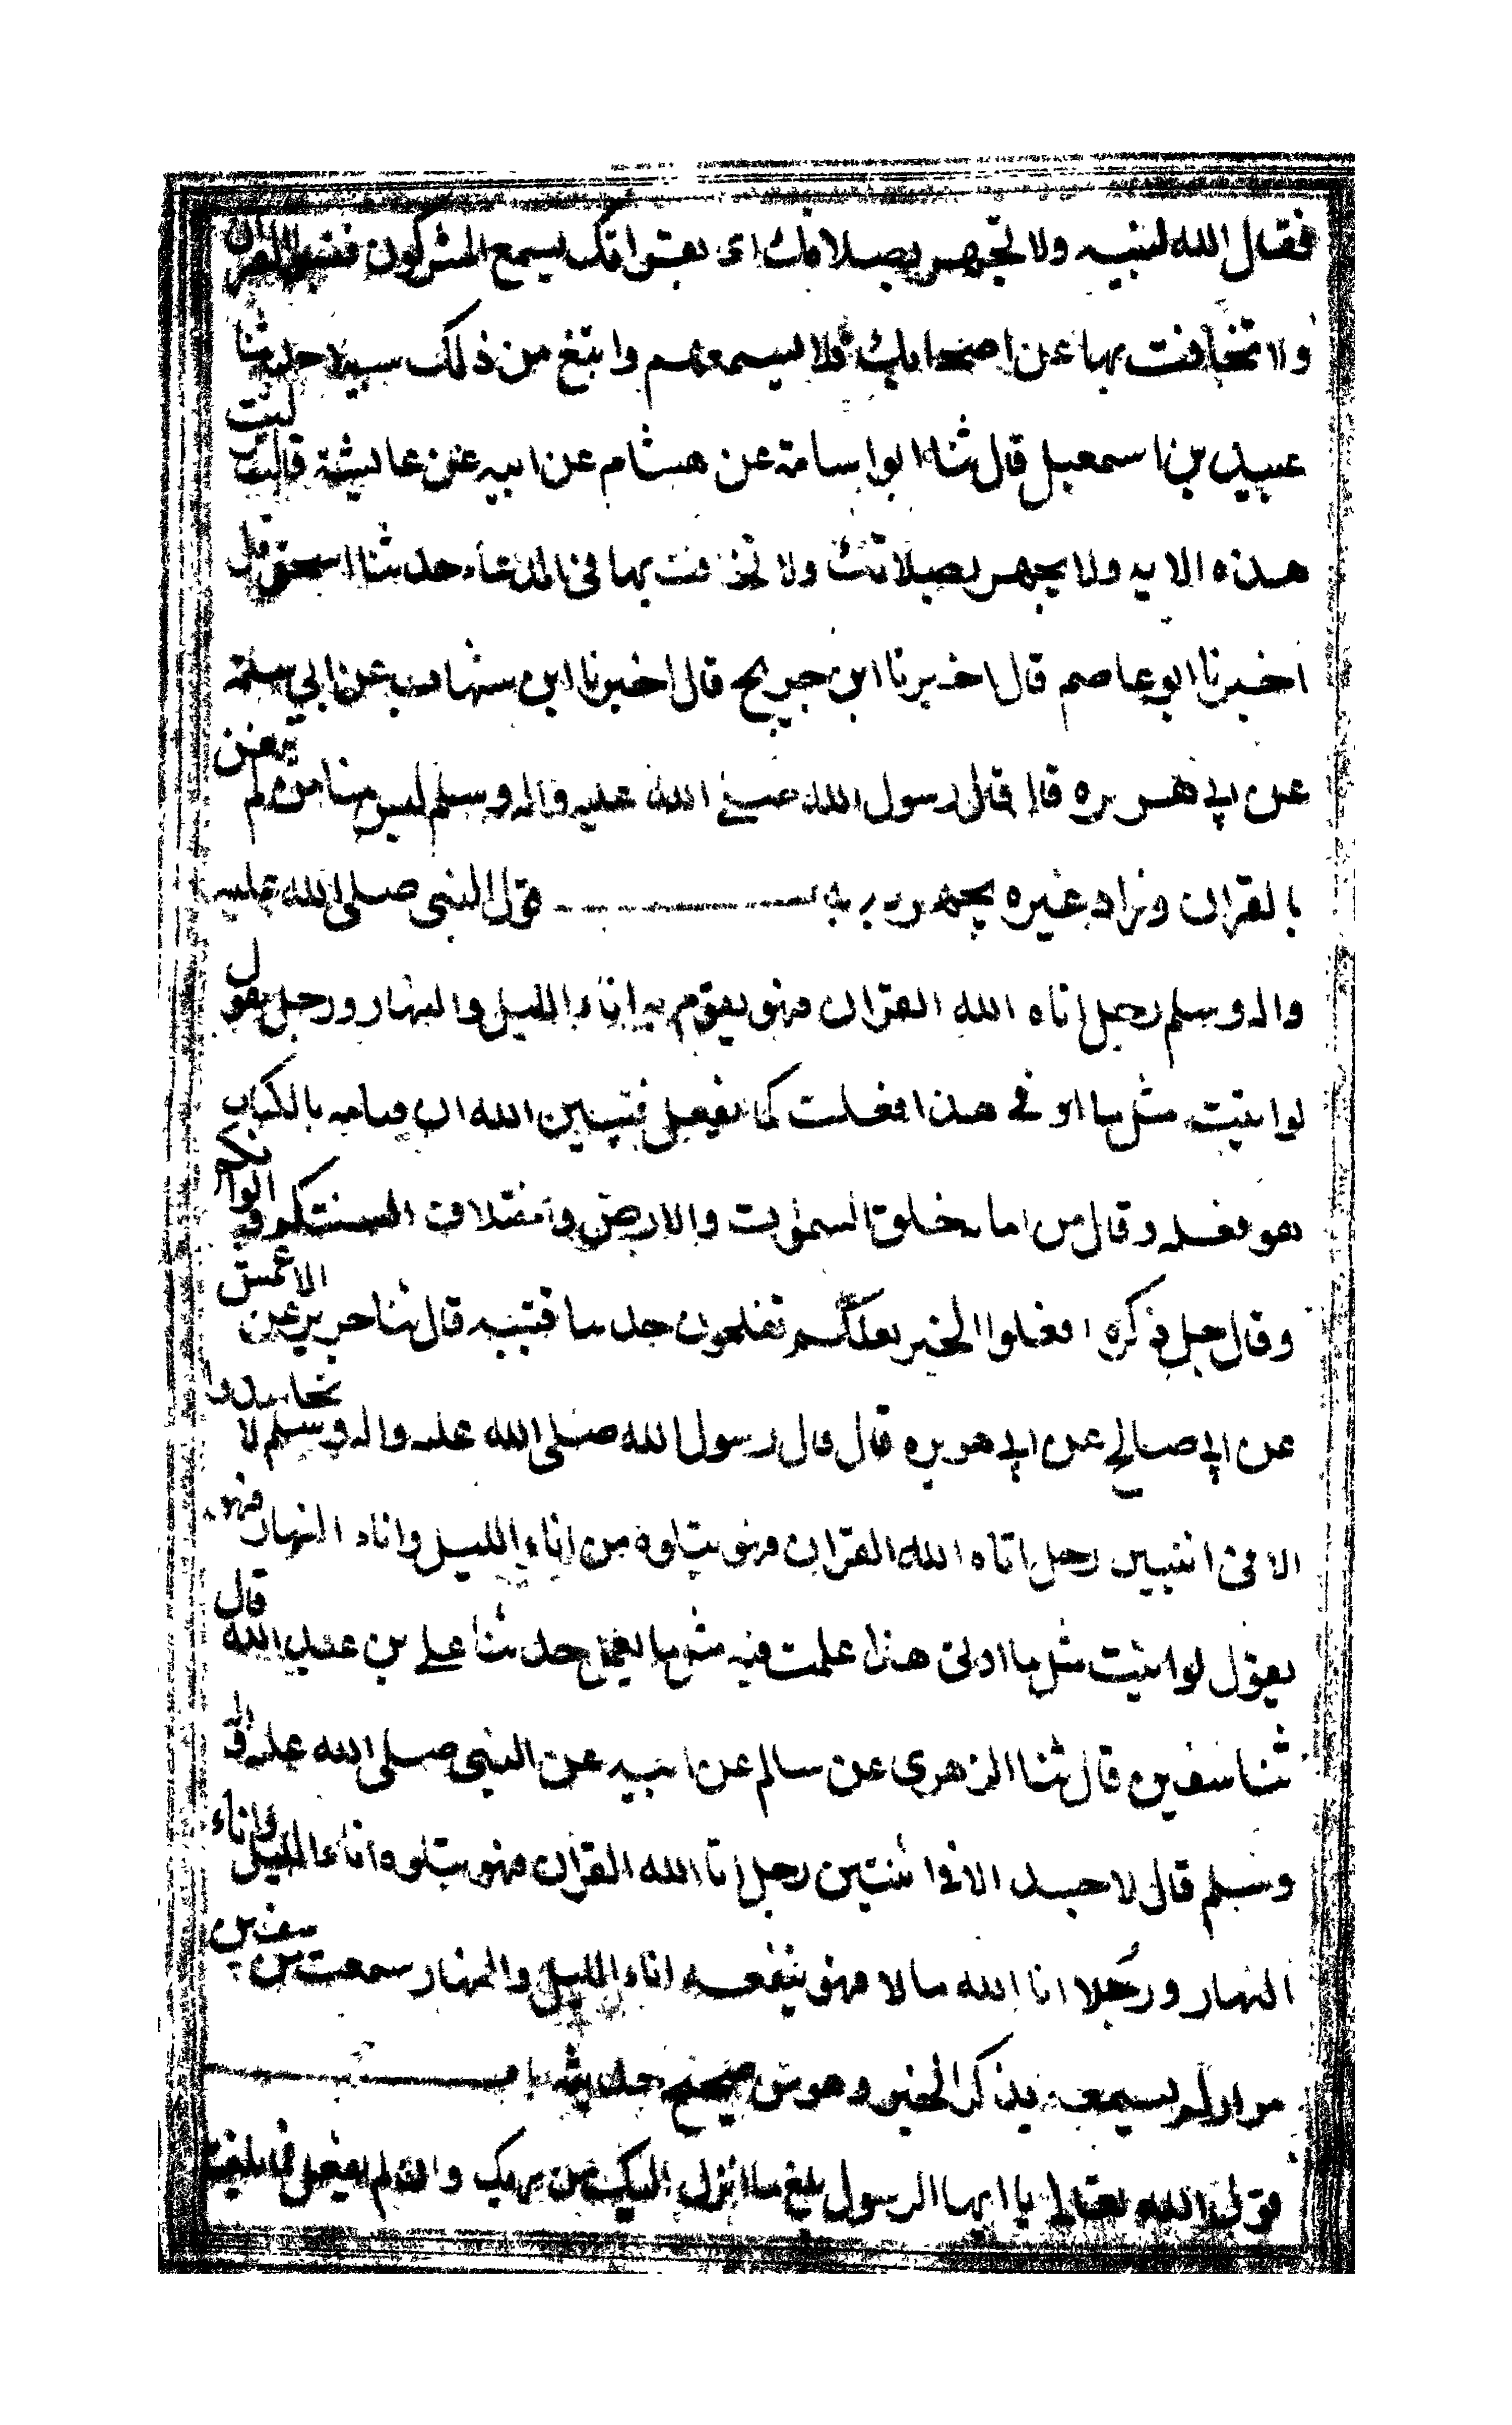 فقال الله لنبيه ولا تجهر بصلاتك اى بقراتك ليسمع المشركون فيسبوا القران
ولا تخافت بها عن اصحابك فلا تسمعهم وابتغ من ذلك سبيلا حدثنا
عبيد بن اسمعيل قال ثنا ابو اسامة عن هشام عن ابيه عن عايشة قالت نزلت
هذه الايه ولا تجهر بصلاتك ولا تخافت بها في الدعاء حدثنا اسحق قال
اخبرنا ابو عاصم قال اخبرنا ابن جريج قال اخبرنا ابن شهاب عن ابي سلمة
عن ابي هريره قال قال رسول الله صلى الله عليه واله وسلم ليس منا من لم يتغن
بالقران وزاد غيره يجهر به قول النبي صلى الله عليه
واله وسلم رجل اتاه الله القران فهو يقوم به اناء الليل والنهار ورجل يقول
لو اتيت مثل ما اوتي هذا فعلت كما يفعل فتبين الله ان قيامه بالكتاب
هو فعله وقال من اياته خلق السموات والارض واختلاف السنتكم والوانكم
وقال جل ذكره افعلوا الخير لعلكم تفلحون حدثنا قتيبه قال ثنا جرير عن الاعمش
عن ابي صالح عن ابي هريره قال قال رسول الله صلى الله عليه واله وسلم لا تحاسدوا
الا في اثنتين رجل اتاه الله القران فهو يتلوه من اناء الليل واناء النهار فهو
يقول لو اتيت مثل ما اوتي هذا عملت فيه مثل ما يعمل حدثنا علي بن عبد الله قال
ثنا سفين قال ثنا الزهري عن سالم عن ابيه عن النبي صلى الله عليه واله
وسلم قال لا حسد الا في اثنتين رجل اتا الله القران فهو يتلوه اناء الليل واناء
النهار ورجلا اتا الله مالا فهو ينفقه اناء الليل والنهار سمعت من سفين
مرارا لم يسمعه يذكر الخبر وهو من صحيح حديثه با
قول الله تعالى يا ايها الرسول بلغ ما انزل اليك من ربك وان لم تفعل فما بلغت